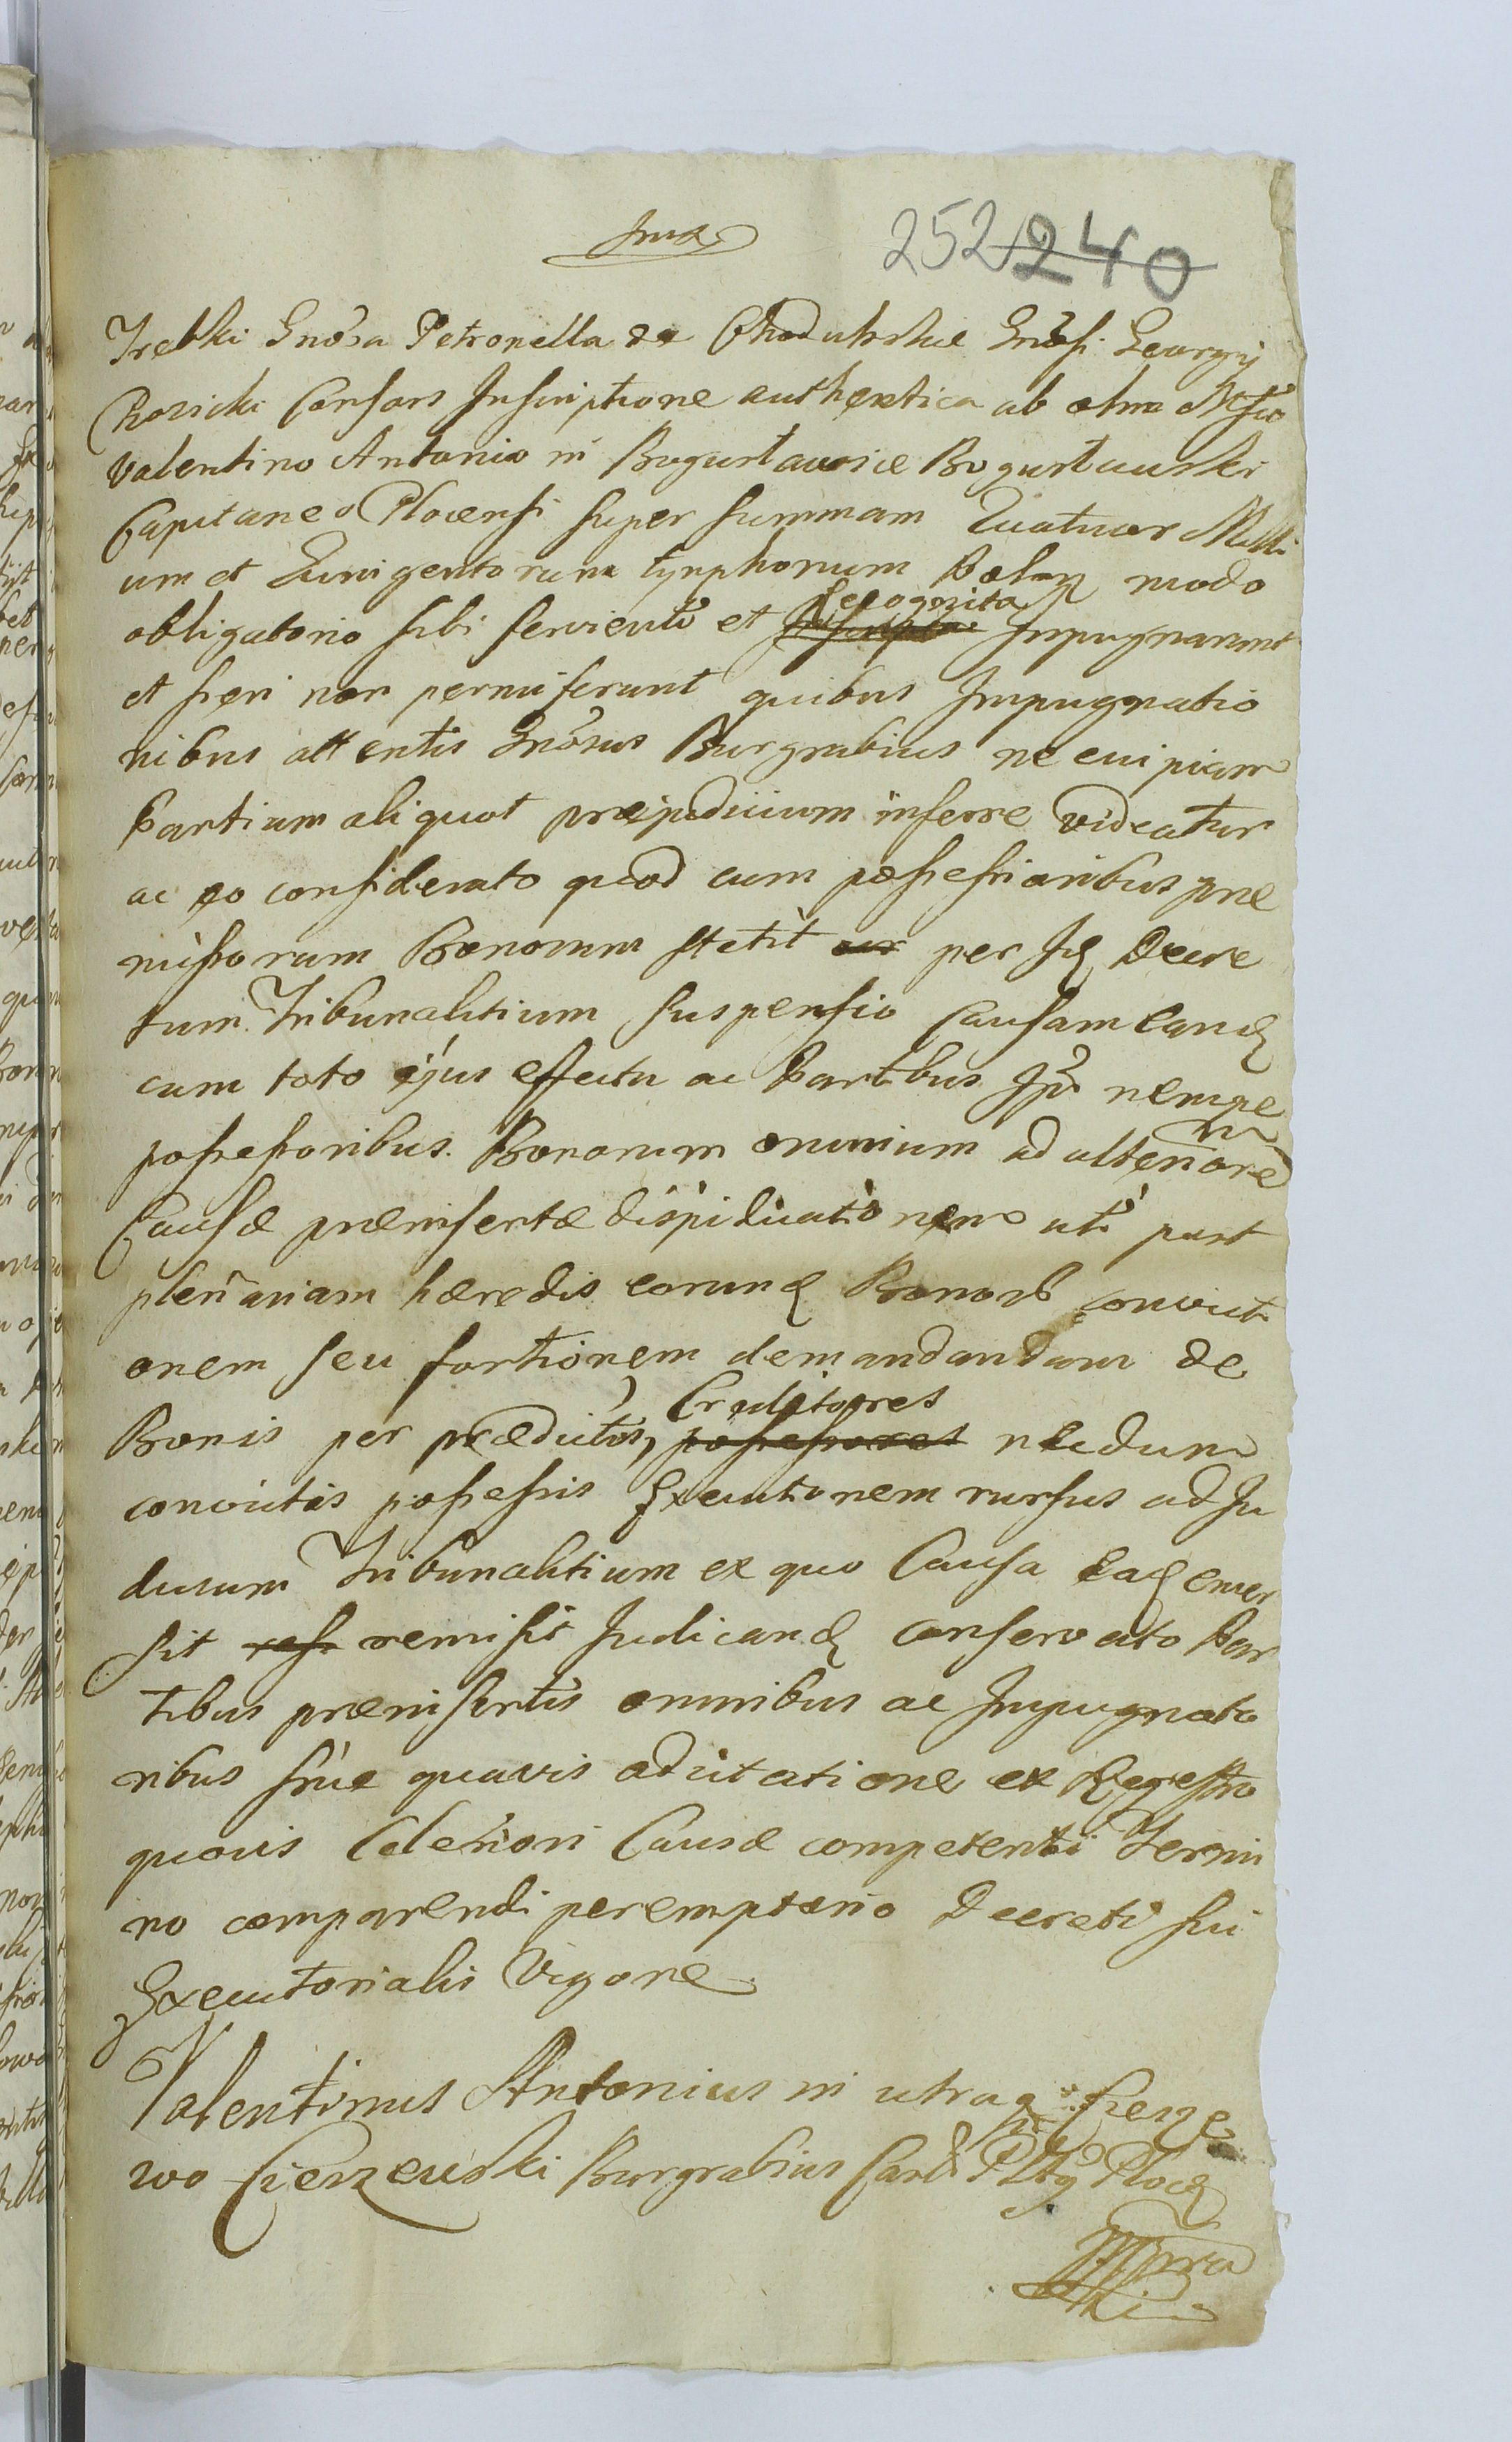 252 240
Trebki Gnosa Petronella de Chodubskie Gnosi Georgij
Rosicki Consors Inscriptione authentica ab olim Mfco
Valentino Antonio in Bogusławice Bogusławski
Capitaneo Plocensi super summam Quatuor Milli
um et Quingentorum tynphonum Polon modo
obligatorio sibi servienti et recognita Impugnarunt
et fieri non permiserunt quibus Impugnatio
nibus attentis Gnosus Burgrabius ne cuipiam
Partium aliquot præjudicium inferre videatur
ac eo considerato quod cum possessioribus præ
missorum Bonorum stetit per Jd Decre
tum Tribunalitium suspensio Causam eand
cum toto ejus effectu ac Partibus Ipsis nempe
possessoribus Bonorum omnium ad ulteriorem
Causæ præinsertæ disjudicationem uti post
plenariam hæredis eorund Bonorum convicti
onem seu sortionem demandandam de
Bonis per prædictos Creditores possessores necdum
convictis possessis Executionem rursus ad Ju
dicium Tribunalitium ex quo Causa ead emer
sit remisit Judicand conservato Par
tibus præinsertis omnibus ac Impugnato
ribus sine quavis adcitatione ex Regestro
quovis Celeriori Causæ competenti Termi
no comparendi peremptorio Decreti sui
Executorialis Vigore
Valentinus Antonius in utraq Cierze
wo Cierzewski Burgrabius Plocen